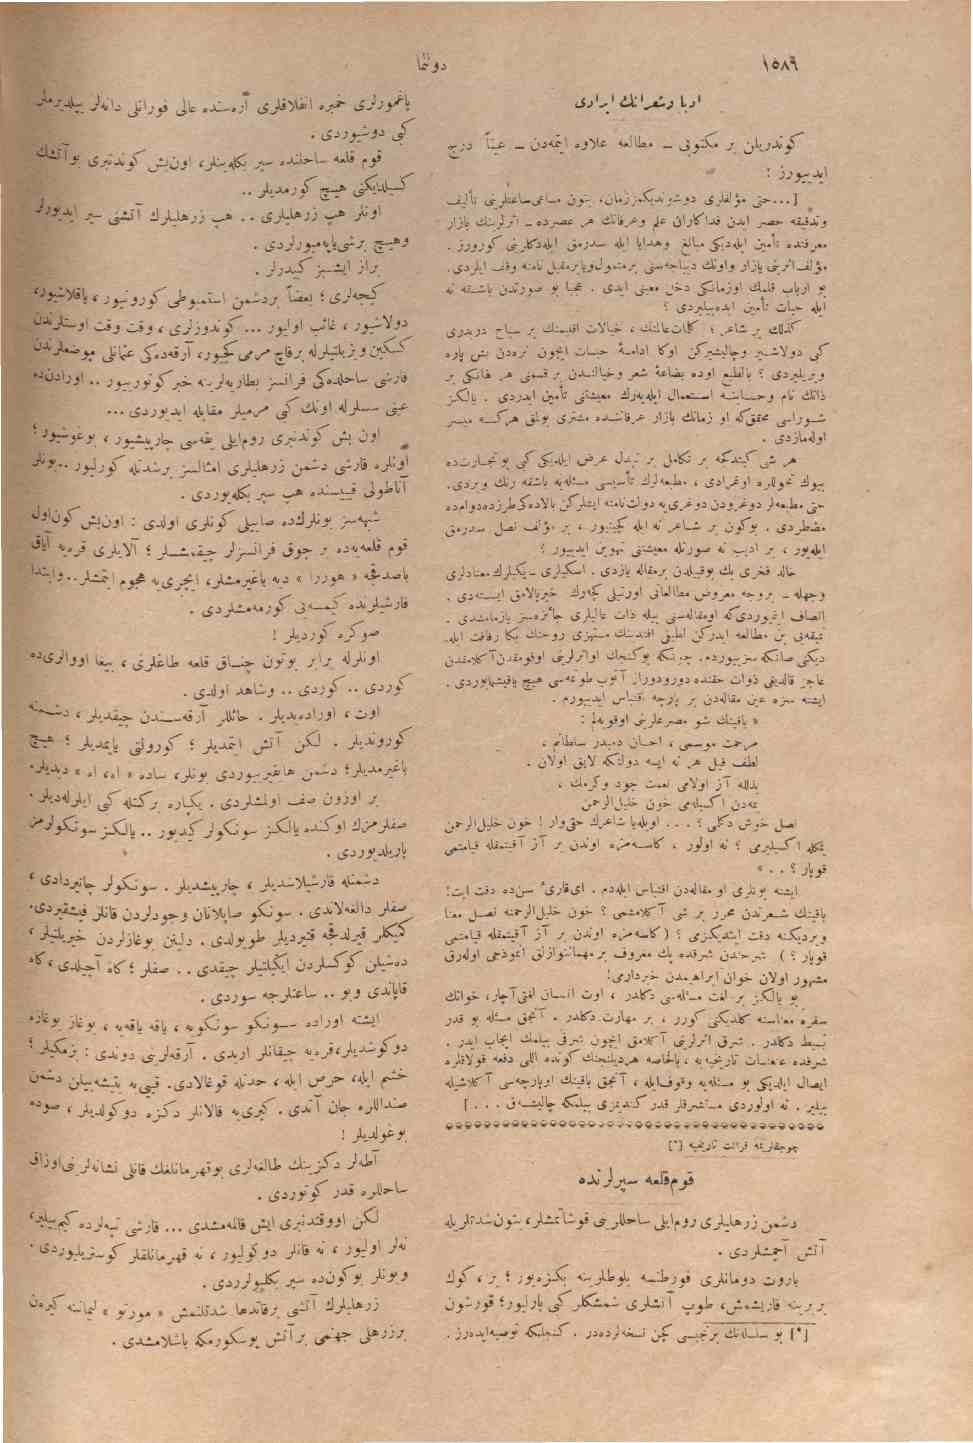 ١٥٨٩
دوننما
ادبا وشعرانك ايرادى
كوندريلن بر مكتوبى ــ مطالعه علاوه ايتمه‌دن ــ عيناً درج
ايدييورز :
[...حتى مؤلفلرى دوشونديكمززمان، بتون مساعى‌ساعتلرينى تأليف
وتدقيقه حصر ايدن فداكاران علم وعرفانك هر عصرده ــ اثرلرينك بازار
معرفنده تأمين ايله‌ديكى مبالغ وهدايا ايله سدرمق ايله‌دكلرينى كورورز .
مؤلف اثرينى يازار واونك ديباجه‌سنى برمتمول‌ويابرمقبل نامنه وقف ايلردى.
بو ارباب قلمك اوزمانكى دخل معينى ايدى . عجبا بو صورتدن باشقه نه
ايله حيات تأمين ايده‌بيليردى ؟
كذلك بر شاعر ؛ كلمات‌عالمنك ، خيالات اقليمنك بر سياح دربدرى
كبى دولاشير وچاليشيركن اوكا ادامهٔ حيات ايچون نره‌دن بش پاره
ويريليردى ؟ بالطبع اوده بضاعهٔ شعر وخيالندن بر قسمنى هر هانكى بر
ذاتك نام وحسابنه استعمال ايله‌يه‌رك معيشتنى تأمين ايدردى . يالكز
شوراسى محققكه او زمانك بازار عرفاننده مشترى بولمق هركسه ميسر
اوله‌مازدى .
هر شى كيتدكجه بر تكامل بر تبدل عرض ايله‌ديكى كبى بو تجارت‌ده
بيوك تحوللره اوغرادى ، مطبعه‌لرك تأسيسى مسئله‌يه باشقه رنك ويردى.
حتى مطبعه‌لر دوغريدن دوغرى‌يه دولت‌نامنه ايشلركن بالاده‌كى‌طرزده‌دوام‌ده
مضطردى . بوكون بر شاعر نه ايله كچينيور ، بر مؤلف نصل سدرمق
ايله‌يور ، بر اديب نه صورتله معيشتنى تهوين ايدييور ؟
خالد فخرى بك بوقبيلدن برمقاله يازدى . اسكيلرى ــ يكيلرك معتادلرى
وجهله ــ بروجه معروض مطالعاتى اورتيلى كچه‌رك خيرپالامق ايسته‌دى .
انصاف ايتميوردى‌كه اومقاله‌سنى بيله ذات عاليلرى جائزه‌سز يازمامشدى .
ديكى صانكه سزييوردم. چونكه بوكنجك اواثرلرينى اوقومقدن آكلامقدن
عاجز قالديغى ذوات حقنده دورودوراز آتوب طوته‌سى هيچ ياقيشمايوردى .
ايشته سزه عين مقاله‌دن بر پارچه اقتباس ايدييورم .
« باقينك شو مصرعلرينى اوقويه‌لم :
مرحمت موسمى ، احسان دميدر سلطانم ،
لطف قيل هر نه ايسه دولتكه لايق اولان .
بذله آز اولامى نعمت جود وكرمك ،
يمه‌دن اكسيله‌مى خون خليل‌الرحمن
نصل خوش دكلمى ؟ ... اويله‌يا شاعرك حقى‌وار ! خون خليل‌الرحمن
يمكله اكسيليرمى ؟ نه اولور ، كاسه‌مزه اوندن بر آز آقيتمقله قيامتمى
قوپار ؟ .. »
ايشته بونلرى او مقاله‌دن اقتباس ايله‌دم . اى‌قارئ سن‌ده دقت ايت!
باقينك شعرندن محرر بر شى آكلامشمى ؟ خون خليل‌الرحمنه نصل معنا
ويرديكنه دقت ايتديكزمى ؟ (كاسه‌مزه اوندن بر آز آقيتمقله قيامتمى
قوپار ؟ ) شرحندن شرقده پك معروف بر مهماننوازلق انموذجى اوله‌رق
مشهور اولان خوان ابراهيمدن خبردارمى!
بو يالكز بر لغت مسئله‌سى دكلدر ، اوت انسان لغتى آچار، خوانك
سفره معناسنه كلديكنى كورر ، بر مهارت دكلدر . آنجق مسئله بو قدر
بسيط دكلدر . شرق اثرلرينى آكلامق ايچون شرقى بيلمك ايجاب ايدر .
ايصال ايلديكى بو مسئله‌يه وقوف‌ايله ، آنجق باقينك اوپارچه‌سى آكلاشيله
بيلير . نه اولوردى مستشرقلر قدر كنديمزى بيلمكه چاليشه‌ق ... ]
چوجقلريمه قرائت تاريخيه [*]
قوم‌قلعه سپرلرنده
دشمن زرهليلرى روم‌ايلى ساحللرينى قوشاتمشلر، بتون شدتلريله
آتش آچمشلردى .
باروت دومانلرى فورطنه بلوطلرينه بكزه‌يور ؛ ير ، كوك
بربرينه قاريشمش، طوپ آتشلرى شمشكلر كبى پارليور؛ قورشون
[*] بو سلسله‌نك برنجيسى كچن نسخه‌لرده‌در . كنجلكه توصيه‌ايده‌رز .
ياغمورلرى خمپره انفلاقلرى آره‌سنده عالى فورانلى دانه‌لر ييلديرملر
كبى دوشيوردى .
قوم قلعه ساحلنده سپر بكله‌ينلر، اون‌بش كوندنبرى بوآتشك
كسيلديكنى هيچ كورمديلر ..
اونلر هپ زرهليلرى .. هپ زرهليلرك آتشنى سير ايديورلر
وهيچ برشى‌ياپه‌ميورلردى .
براز ايشسز كيبدرلر .
كيجه‌لرى ؛ بعضاً بردشمن استمبوطى كورونيور ، ياقلاشيور،
دولاشيور ، غائب اوليور ... كوندوزلرى ، وقت وقت اوستلرندن
كسكين ويزيلتيلرله برقاچ مرمى كچيور، آرقه‌ده‌كى عثمانلى موضعلرندن
قارشى ساحلده‌كى فرانسز بطاريه‌لرينه خبر كوتوريور .. اورادن‌ده
عينى سسلرله اونك كبى مرميلر مقابله ايديوردى ...
اون بش كوندنبرى روم‌ايلى يقه‌سى چارپيشيور ، بوغوشيور ؛
اونلره قارشى دشمن زرهليلرى امثالسز برشدتله كورليور .. بونلر
آناطولى قييسنده هپ سپر بكله‌يوردى .
شبهه‌سز بونلرك‌ده صاييلى كونلرى اولدى : اون‌بش كون‌اول
قوم قلعه‌يه‌ده بر چوق فرانسزلر چيقمشلر ؛ آلايلرى قره‌يه آياق
باصدقجه « هوررا » ديه باغيرمشلر، ايچرى‌يه هجوم ايتمشلر .. وابتدا
قارشيلرنده كيمسه‌يى كورمه‌مشلردى .
صوكره كورديلر !
اونلرله برابر بوتون چناق قلعه طاغلرى ، بيغا اووالرى‌ده
كوردى .. كوردى .. وشاهد اولدى .
اوت ، اوراده‌يديلر . حائللر آرقه‌سندن چيقديلر ، دشمنه
كوروندیلر . لكن آتش ايتمديلر ؛ كورولتى ياپمديلر ؛ هيچ
باغيرمديلر؛ دشمن هايقيرييوردى بونلر، ساده « اه ، اه » ديديلر.
بر اوزون صف اولمشلردى . يكپاره بركتله كبى ايلرله‌ديلر .
صفلرمزك اوكنده يالكز سونكولر كيديور .. يالكز سونكولرمز
پاريلديوردى .
دشمنله قارشيلاشديلر ، چارپيشديلر . سونكولر چاتيردادى ،
صفلر دالغه‌لاندى . سونكو صاپلانان وجودلردن قانلر فيشقيردى.
كميكلر قيرلدقجه چتيرديلر طويولدى . دلينن بوغازلردن خيريلتيلر ،
ده‌شيلن كوكسلردن ايكيلتيلر چيقدى .. صفلر ؛ كاه آچيلدى ، كاه
قاپاندى وبو .. ساعتلرجه سوردى .
ايشته اوراده سونكو سونكويه ، ياقه ياقه‌يه ، بوغاز بوغازه
دوكوشديلر، قره‌يه چيقانلر اريدى . آرقه‌لرينى دوندى : بزمكيلر ؛
خشم ايله، حرص ايله ، حدتله قوغالادى. قييى‌يه يتيشه‌بيلن دشمن
صنداللره جان آتدى . كيرى‌يه قالانلر دكزه دوكولديلر ، صوده
بوغولديلر !
آطه‌لر دكزينك طالغه‌لرى بوقهرمانلغك قانلى نشانه‌لرينى‌اوزاق
ساحللره قدر كوتوردى .
لكن اووقتدنبرى ايش قالمه‌مشدى ... قارشى تپه‌لرده كيم‌بيلير،
نه‌لر اوليور ، نه قانلر دوكوليور ، نه قهرمانلقلر كوستريليوردى .
وبونلر بوكون‌ده سپر بكليورلردى .
زرهليلرك آتشى برقاتدها شدتلنمش « مورتو » ليماننه كيره‌ن
برزرهلى جهنمى برآتش پوسكورمكه باشلامشدى .